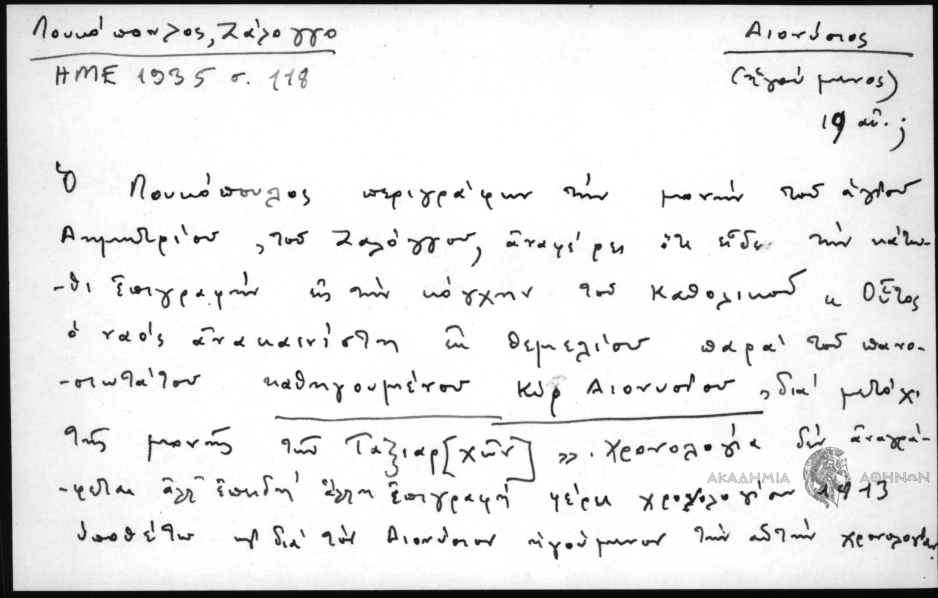 Λουκόπουλος, Ζάλογγο
Διονύσιος
ΗΜΕ 1935 σ. 118
(ἡγούμενος)
19 αἰ.;
Ὁ Λουκόπουλος περιγράφων τὴν μονὴν τοῦ ἁγίου
Δημητρίου, τοῦ Ζαλόγγου, ἀναφέρει ὅτι εἶδε τὴν κάτω-
-θι ἐπιγραφὴν εἰς τὴν κόγχην τοῦ καθολικοῦ « Οὗτος
ὁ ναός ἀνακαινίστη ἐκ θεμελίου παρά τοῦ πανο-
-σιωτάτου καθηγουμένου κὺρ Διονυσίου, διά μετόχι
τῆς μονῆς τῶν Ταξιαρ[χῶν] ». χρονολογία δὲν ἀναγρά-
-φεται ἀλλ' ἐπειδή ἄλλη ἐπιγραφή φέρει χρονολογίαν 1913
ὑποθέτω καὶ διά τὸν Διονύσιον ἡγούμενον τὴν αὐτὴν χρονολογίαν
ΑΚΑΔΗΜΙΑ ΑΘΗΝΩΝ